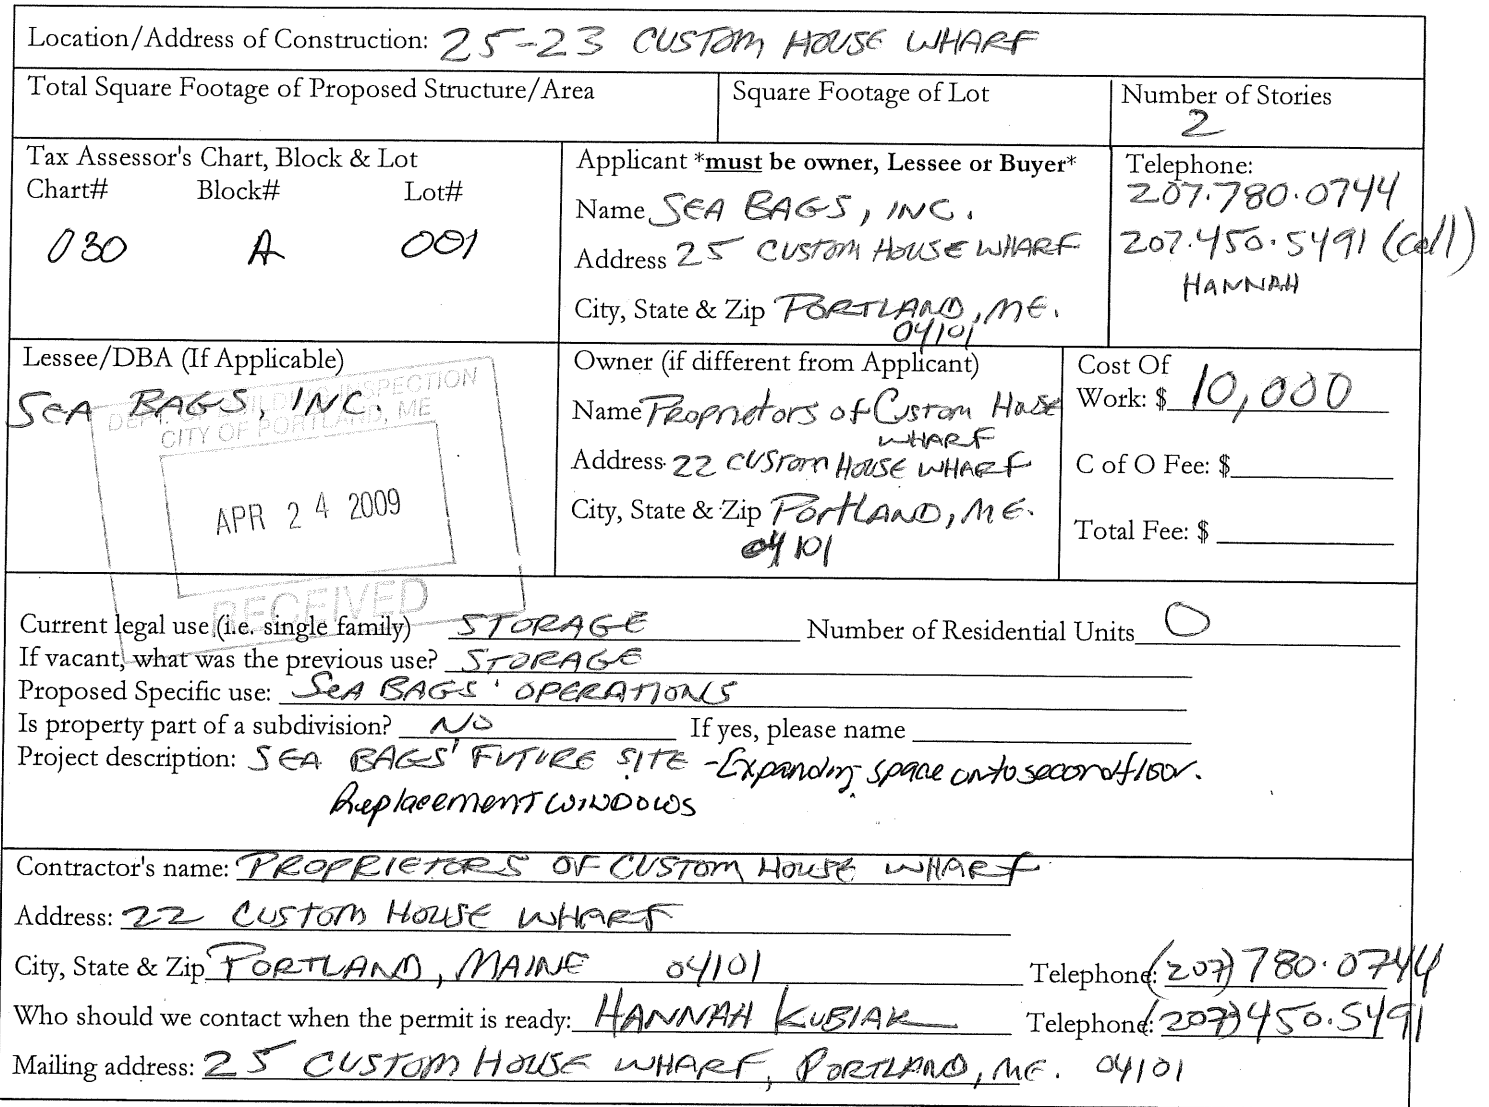 Location/Address of Construction: 25-23 CUSTOM HOUSE WHARF
Total Square Footage of Proposed Structure/Area
Square Footage of Lot
Number of Stories
2
Tax Assessor's Chart, Block & Lot
Chart# Block# Lot#
030 A 001
Applicant *must be owner, Lessee or Buyer*
Name SEA BAGS, INC.
Address 25 CUSTOM HOUSE WHARF
City, State & Zip PORTLAND, ME.
04101
Telephone:
207.780.0744
207.450.5491 (cell)
HANNAH
Lessee/DBA (If Applicable)
SEA BAGS, INC.
DEPT. OF BUILDING INSPECTION
CITY OF PORTLAND, ME
APR 24 2009
RECEIVED
Owner (if different from Applicant)
Name Proprietors of Custom House
WHARF
Address 22 CUSTOM HOUSE WHARF
City, State & Zip PORTLAND, ME.
04101
Cost Of
Work: $ 10,000
C of O Fee: $
Total Fee: $
Current legal use (i.e. single family) STORAGE Number of Residential Units 0
If vacant, what was the previous use? STORAGE
Proposed Specific use: SEA BAGS' OPERATIONS
Is property part of a subdivision? NO If yes, please name
Project description: SEA BAGS' FUTURE SITE - Expanding space onto second floor.
Replacement WINDOWS
Contractor's name: PROPRIETORS OF CUSTOM HOUSE WHARF
Address: 22 CUSTOM HOUSE WHARF
City, State & Zip PORTLAND, MAINE 04101 Telephone: (207) 780.0744
Who should we contact when the permit is ready: HANNAH KUBIAK Telephone: (207) 450.5491
Mailing address: 25 CUSTOM HOUSE WHARF, PORTLAND, ME. 04101